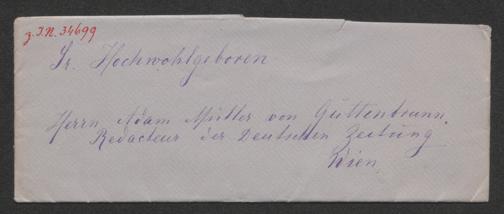 z.I.N. 34699
Sr. Hochwohlgeboren
Herrn Adam Müller von Guttenbrunn.
Redacteur der Deutschen Zeitung
Wien